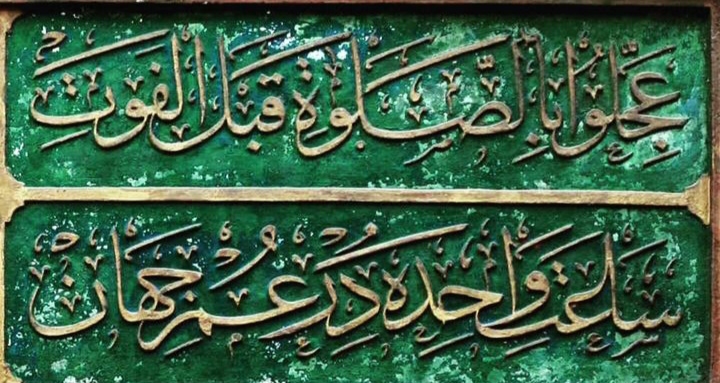 عَجِّلُوا بِالصَّلٰوةِ قَبْلَ الْفَوْتِ
ساعت واحده در عمر جهان